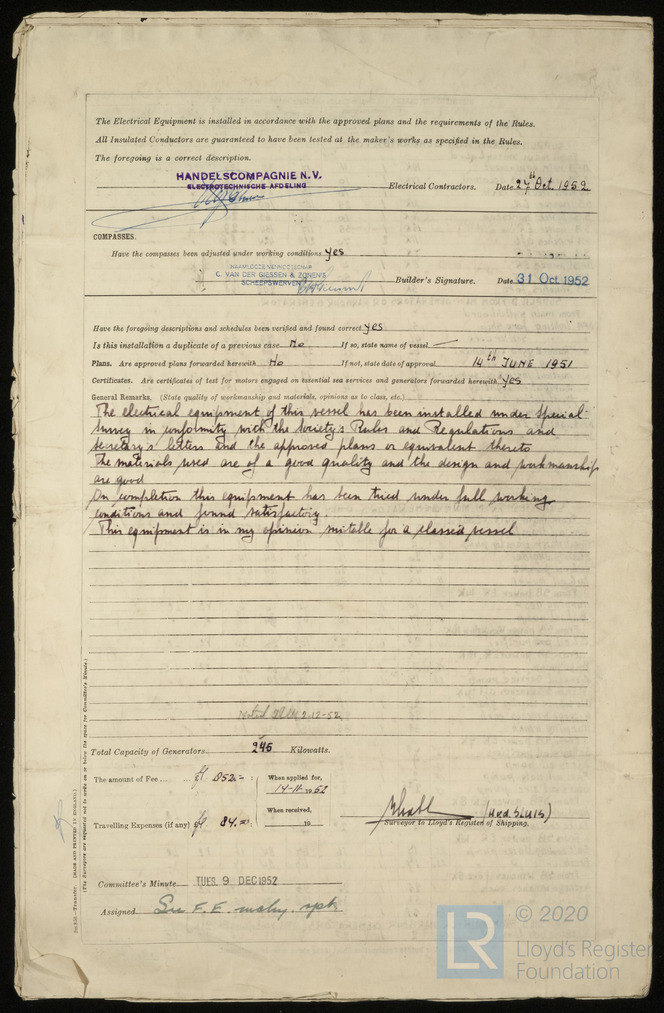 The Electrical Equipment is installed in accordance with the approved plans and the requirements of the Rules.
All Insulated Conductors are guaranteed to have been tested at the maker's works as specified in the Rules.
The foregoing is a correct description.
HANDELSCOMPAGNIE N.V.
ELECTROTECHNISCHE AFDELING
Electrical Contractors. Date 27th Oct. 1952
COMPASSES.
Have the compasses been adjusted under working conditions yes
NAAMLOOZE VENNOOTSCHAP
C. VAN DER GIESSEN & ZONEN'S
SCHEEPSWERVEN
Builder's Signature. Date 31 Oct. 1952
Have the foregoing descriptions and schedules been verified and found correct yes
Is this installation a duplicate of a previous case No If so, state name of vessel —
Plans. Are approved plans forwarded herewith No If not, state date of approval 14th JUNE 1951
Certificates. Are certificates of test for motors engaged on essential sea services and generators forwarded herewith yes
General Remarks. (State quality of workmanship and materials, opinions as to class, etc.)
The electrical equipment of this vessel has been installed under Special
Survey in conformity with the Society's Rules and Regulations and
Secretary's letters and the approved plans or equivalent thereto
The materials used are of a good quality and the design and workmanship
are good
On completion this equipment has been tried under full working
conditions and found satisfactory.
This equipment is in my opinion suitable for a classed vessel
Noted 2-12-52
Total Capacity of Generators 245 Kilowatts.
The amount of Fee ... ... fl 852.= : When applied for, 14-11-1952
Travelling Expenses (if any) fl 84.= : When received, 19
(H.v.d. SLUIS)
Surveyor to Lloyd's Register of Shipping.
Committee's Minute TUES. 9 DEC 1952
Assigned See F.E. mchy. rpt.
(MADE AND PRINTED IN ENGLAND.)
(The Surveyors are requested not to write on or below the space for Committee's Minute.)
LR
© 2020
Lloyd's Register
Foundation